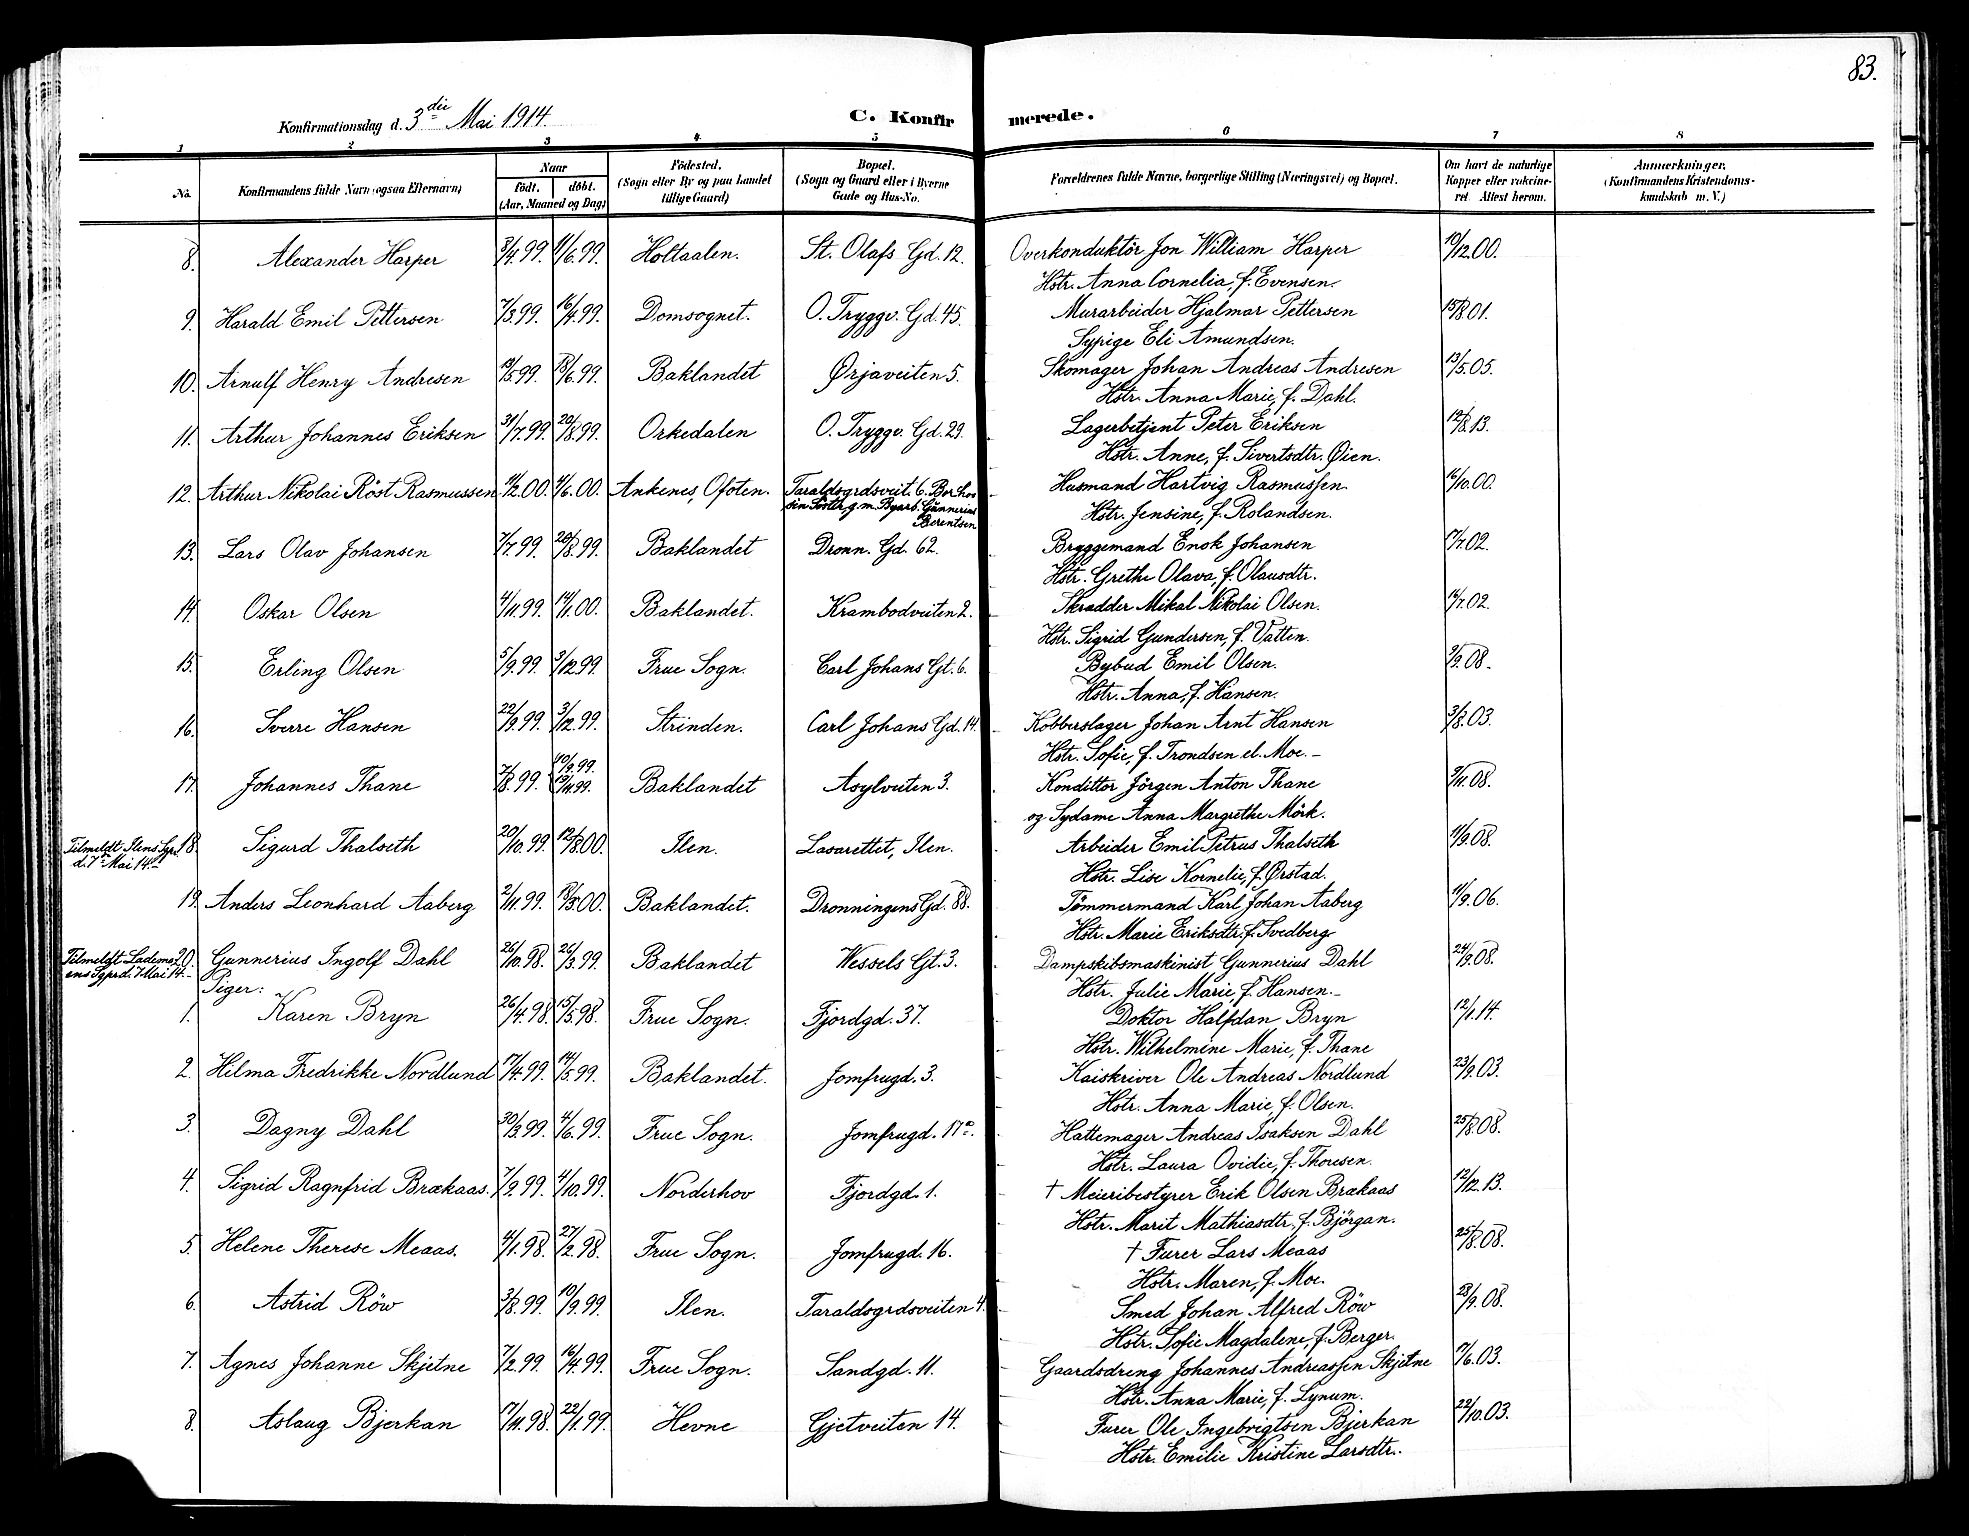 83.
Konfirmationsdag d. 3die Mai 1914.
C. Konfirmerede.
1 2 3 4 5 6 7 8
No. Konfirmandens fulde Navn (ogsaa Efternavn) Naar født. døbt. (Aar, Maaned og Dag) Fødested. (Sogn eller By og paa Landet tillige Gaard) Bopæl. (Sogn og Gaard eller i Byerne Gade og Hus-No. Forældrenes fulde Navne, borgerlige Stilling (Næringsvei) og Bopæl. Om havt de naturlige Kopper eller vakcineret. Attest herom. Anmærkninger. (Konfirmandens Kristendomskundskab m. V.)
8. Alexander Harper 3/4.99. 11/6.99. Holtaalen. St. Olafs Gd. 12. Overkonduktör Jon William Harper 10/12.00.
Hstr. Anna Cornelia, f. Evensen.
9. Harald Emil Pettersen 7/3.99. 16/4.99. Domsognet. O. Tryggv. Gd. 45. Murarbeider Hjalmar Pettersen 15/8.01.
Sypige Eli Amundsen.
10. Arnulf Henry Andresen /5.99. 18/6.99. Baklandet Ørjaveiten 5. Skomager Johan Andreas Andresen 13/5.05.
Hstr. Anna Marie, f. Dahl.
11. Arthur Johannes Eriksen 31/7.99. 20/8.99. Orkedalen O. Tryggv. Gd. 29. Lagerbetjent Peter Eriksen 12/8.13.
Hstr. Anne, f. Sivertsdtr. Øien.
12. Arthur Nikolai Röst Rasmussen 11/2.00. 4/6.00. Ankenes, Ofoten. Taraldsgrdsveit. 6. Bor hos Husmand Hartvig Rasmussen. 16/10.00.
sin Søstr. g. m. Byarb. Gunnerius Berentsen Hstr. Jensine, f. Rolandsen.
13. Lars Olav Johansen 7/7.99. 20/8.99. Baklandet Dronn. Gd. 62. Bryggemand Enok Johansen 7/7.02.
Hstr. Grethe Olava, f. Olausdtr.
14. Oskar Olsen 4/11.99. 14/1.00. Baklandet. Krambodveiten 2. Skrædder Mikal Nikolai Olsen. 16/7.02.
Hstr. Sigrid Gundersen, f. Vatten.
15. Erling Olsen 5/9.99. 3/12.99. Frue Sogn. Carl Johans Gt. 6. Bybud Emil Olsen. 3/9.08.
Hstr. Anna, f. Hansen.
16. Sverre Hansen 22/9.99. 3/12.99. Strinden. Carl Johans Gd. 14. Kobberslager Johan Arnt Hansen 3/8.03.
Hstr. Sofie, f. Trondsen el. Moe.
17. Johannes Thane 7/8.99. 10/9.99. 19/11.99. Baklandet Asylveiten 3. Konditor Jörgen Anton Thane 3/11.08.
og Sydame Anna Margrethe Mörk.
Tilmeldt Ilens Spr. d. 7de Mai 14. 18. Sigurd Thalseth 20/10.99. 12/8.00. Ilen. Lasarettet, Ilen. Arbeider Emil Petrus Thalseth 11/9.08.
Hstr. Lise Kornelie, f. Ørstad.
19. Anders Leonhard Aaberg 2/11.99. 18/3.00. Baklandet. Dronningens Gd. 88. Tömmermand Karl Johan Aaberg 11/9.06.
Hstr. Marie Eriksdtr. f. Svedberg
Tilmeldt Lademoens Spr. d. 7 Mai 14. 20. Gunnerius Ingolf Dahl 26/10.98. 26/3.99. Baklandet Wessels Gt. 3. Dampskibsmaskinist Gunnerius Dahl 24/9.08.
Hstr. Julie Marie, f. Hansen.
Piger:
1. Karen Bryn 26/4.98. 15/5.98. Frue Sogn. Fjordgd. 37. Doktor Halfdan Bryn 12/1.14.
Hstr. Wilhelmine Marie, f. Thane
2. Hilma Fredrikke Nordlund 17/4.99. 14/5.99. Baklandet. Jomfrugd. 3. Kaiskriver Ole Andreas Nordlund 23/9.03.
Hstr. Anna Marie, f. Olsen.
3. Dagny Dahl 30/3.99. 4/6.99. Frue Sogn. Jomfrugd. 17a. Hattemager Andreas Isaksen Dahl 25/8.08.
Hstr. Laura Ovidie, f. Thoresen.
4. Sigrid Ragnfrid Brækaas. 7/9.99. 4/10.99. Norderhov Fjordgd. 1. † Meieribestyrer Erik Olsen Brækaas 12/12.13.
Hstr. Marit Mathiasdtr. f. Björgan.
5. Helene Therese Meaas. 4/1.98. 27/2.98. Frue Sogn. Jomfrugd. 16. † Furer Lars Meaas 25/8.08.
Hstr. Maren, f. Moe.
6. Astrid Röw 3/8.99. 10/9.99. Ilen. Taraldsgrdsveiten 4. Smed Johan Alfred Röw 28/9.08.
Hstr. Sofie Magdalene, f. Berger.
7. Agnes Johanne Skjetne 7/2.99. 16/4.99. Frue Sogn. Sandgd. 11. Gaardsdreng Johannes Andreassen Skjetne 17/6.03.
Hstr. Anna Marie, f. Lynum.
8. Aslaug Bjerkan 17/11.98. 22/1.99. Hevne Gjetveiten 14. Furer Ole Ingebrigtsen Bjerkan 22/10.03.
Hstr. Emilie Kristine Larsdtr.